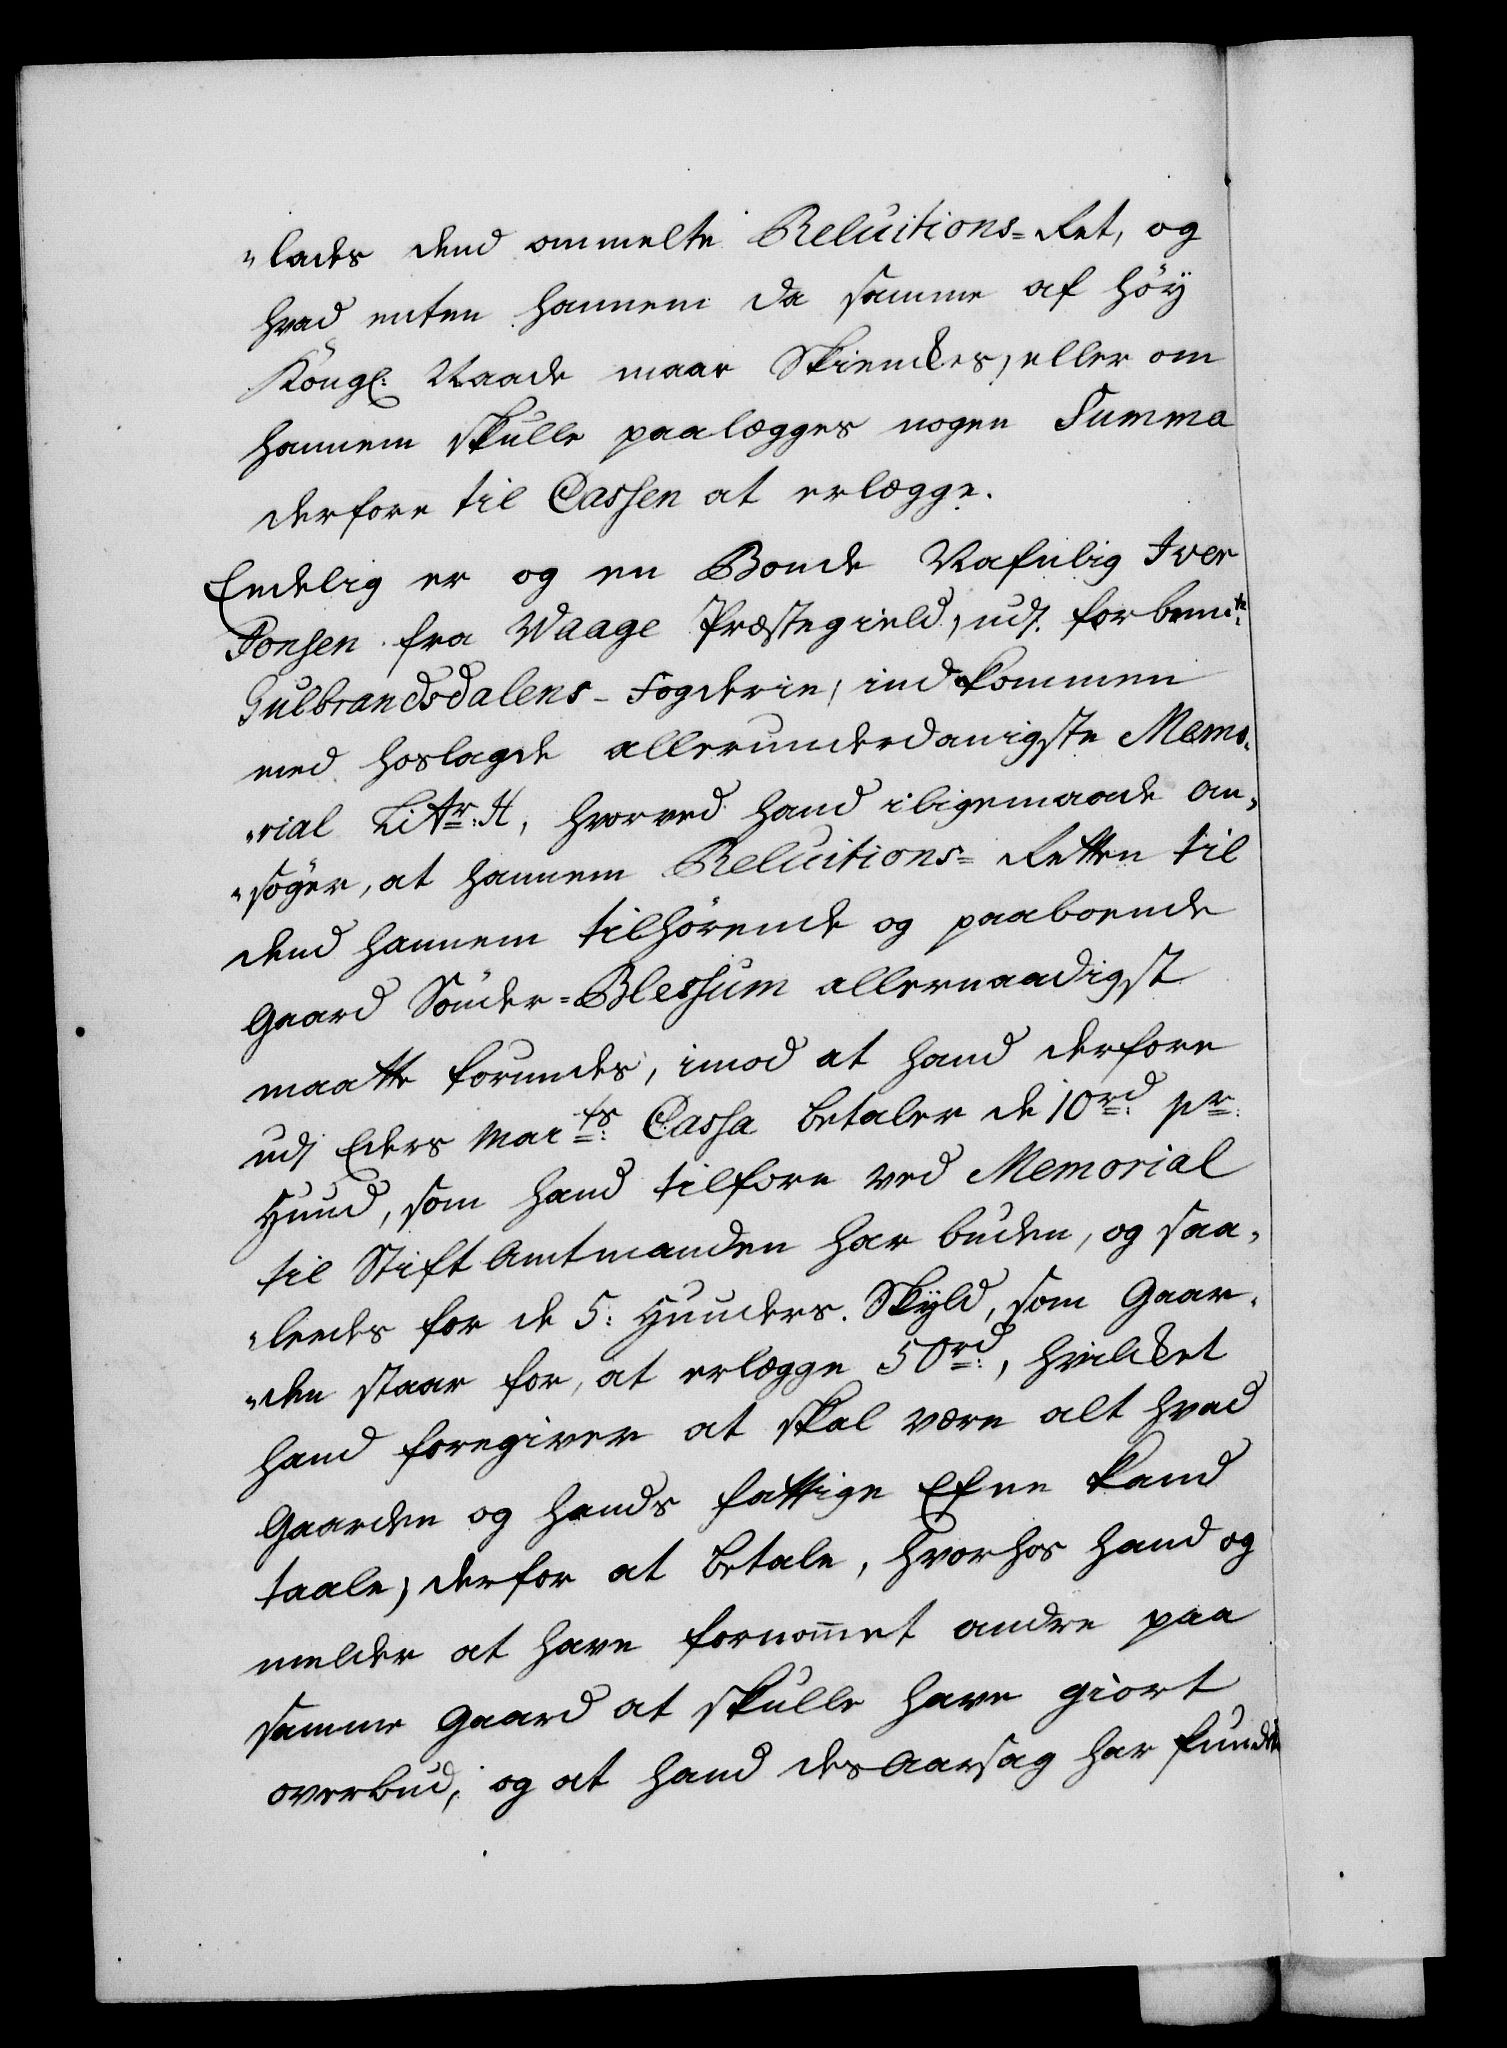 "lades dend ommelte Reluitions=Ret, og
hvad enten hannem da samme af høÿ
Kongl: Naade maae Skienckes, eller om
hannem skulle paalægges nogen Summa
derfore til Cassen at erlægge.
Endelig er og en Bonde Nafnlig Iver
Ponsen fra Waage Præstegield, udj forbem.te
Gulbrandsdalens-Fogderie, indkommen
med hoslagde allerunderdanigste Memo„
„rial Litr: H, hvorved hand iligemaade an„
„søger, at hannem Reluitions=Retten til
dend hannem tilhørende og paaboende
Gaard Sønder=Blessum allernaadigst
maatte forundes, imod at hand derfore
udj Eders Maits: Cassa betaler de 10rd: pr:
Huud, som hand tilforn ved Memorial
til Stift Amtmanden har buden, og saa„
„leedes for de 5: Huuders Skÿld, som Gaar„
„den staar for, at erlægge 50rd:, hvilcket
hand foregiver at skal være alt hvad
Gaarden og hands fattige Efne kand
taale, derfor at betale, hvorhos hand og
melder at have fornom̄et andre paa
samme Gaard at skulle have giort
overbud, og at hand desaarsag har funden